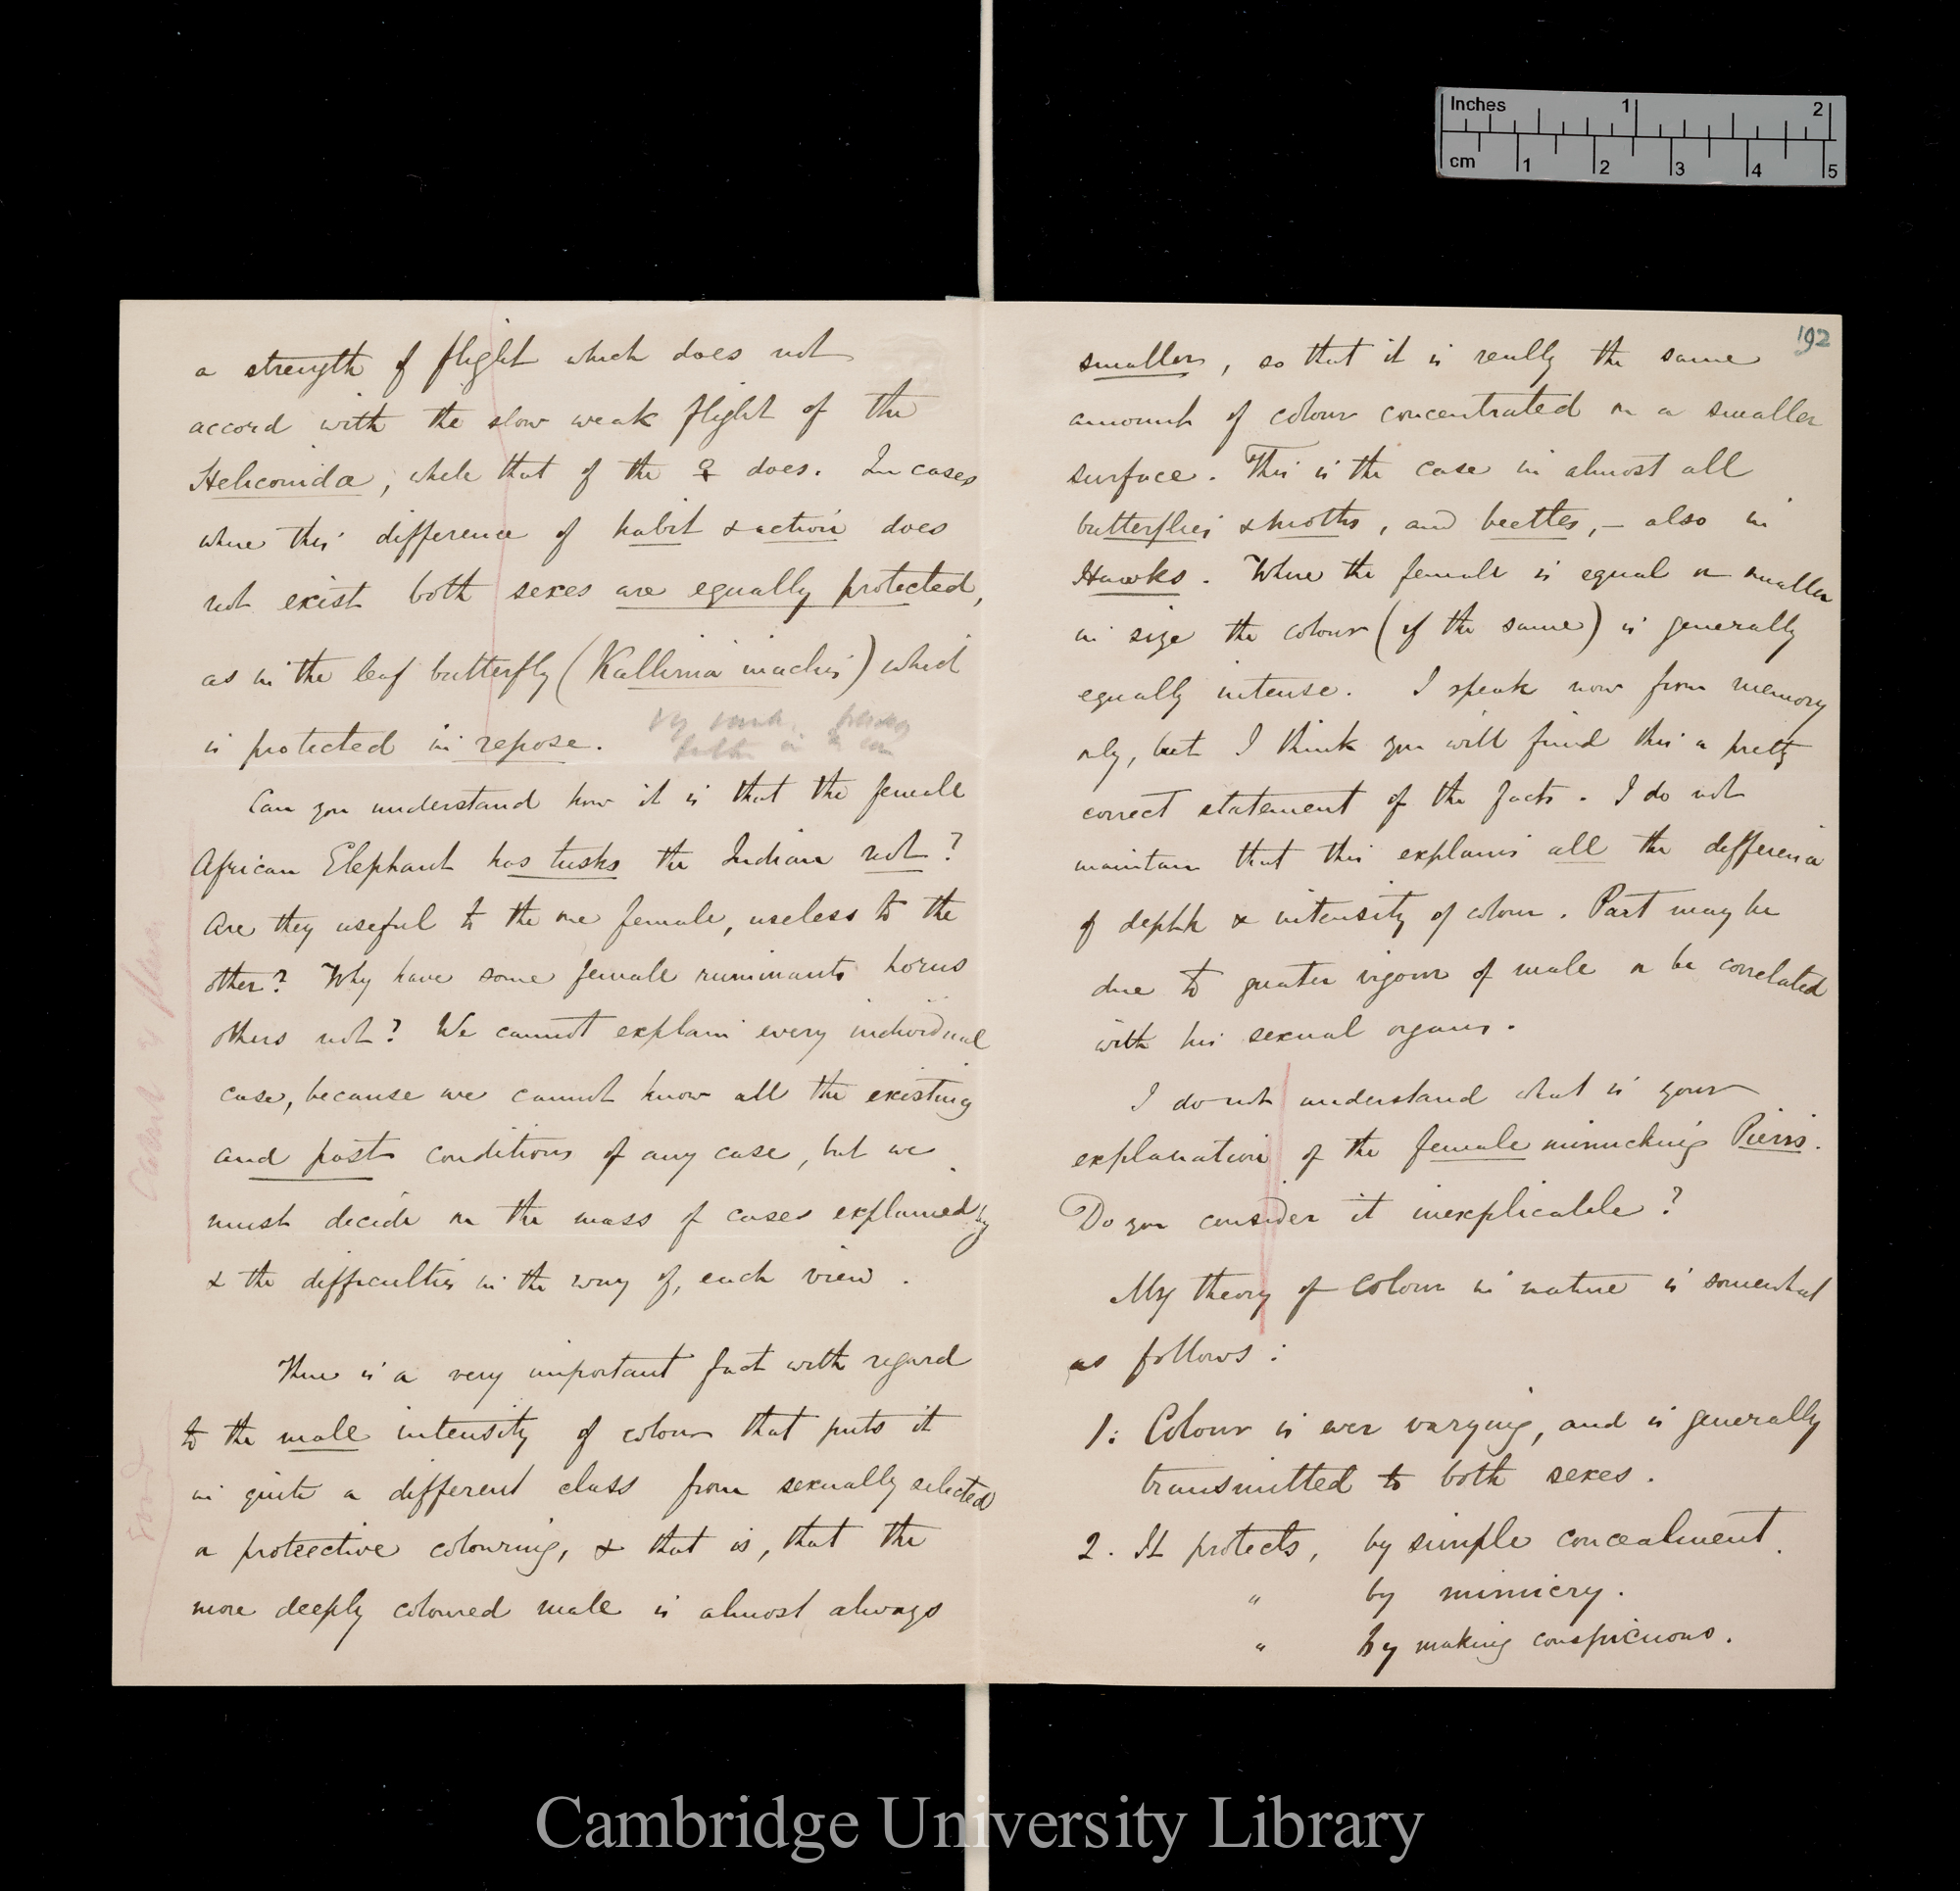 Inches 1 2
cm 1 2 3 4 5
a strength of flight which does not
accord with the slow weak flight of the
Heliconidæ, while that of the ♀ does. In cases
where this difference of habit & action does
not exist both sexes are equally protected,
as in the leaf butterfly (Kallima inachis) which
is protected in repose.
Can you understand how it is that the female
African Elephant has tusks the Indian not?
Are they useful to the one female, useless to the
other? Why have some female ruminants horns
others not? We cannot explain every individual
case, because we cannot know all the existing
and past conditions of any case, but we
must decide on the mass of cases explained by
& the difficulties in the way of, each view.
There is a very important fact with regard
to the male intensity of colour that puts it
in quite a different class from sexually selected
or protective colouring, & that is, that the
more deeply coloured male is almost always
192
smaller, so that it is really the same
amount of colour concentrated on a smaller
surface. This is the case in almost all
butterflies & moths, and beetles, – also in
Hawks. Where the female is equal or smaller
in size the colour (if the same) is generally
equally intense. I speak now from memory
only, but I think you will find this a pretty
correct statement of the facts. I do not
maintain that this explains all the difference
of depth & intensity of colour. Part may be
due to greater vigour of male or be correlated
with his sexual organs.
I do not understand what is your
explanation of the female mimicking Pieris.
Do you consider it inexplicable?
My theory of colour in nature is somewhat
as follows:
1: Colour is ever varying, and is generally
transmitted to both sexes.
2. It protects, by simple concealment.
" by mimicry.
" by making conspicuous.
Cambridge University Library